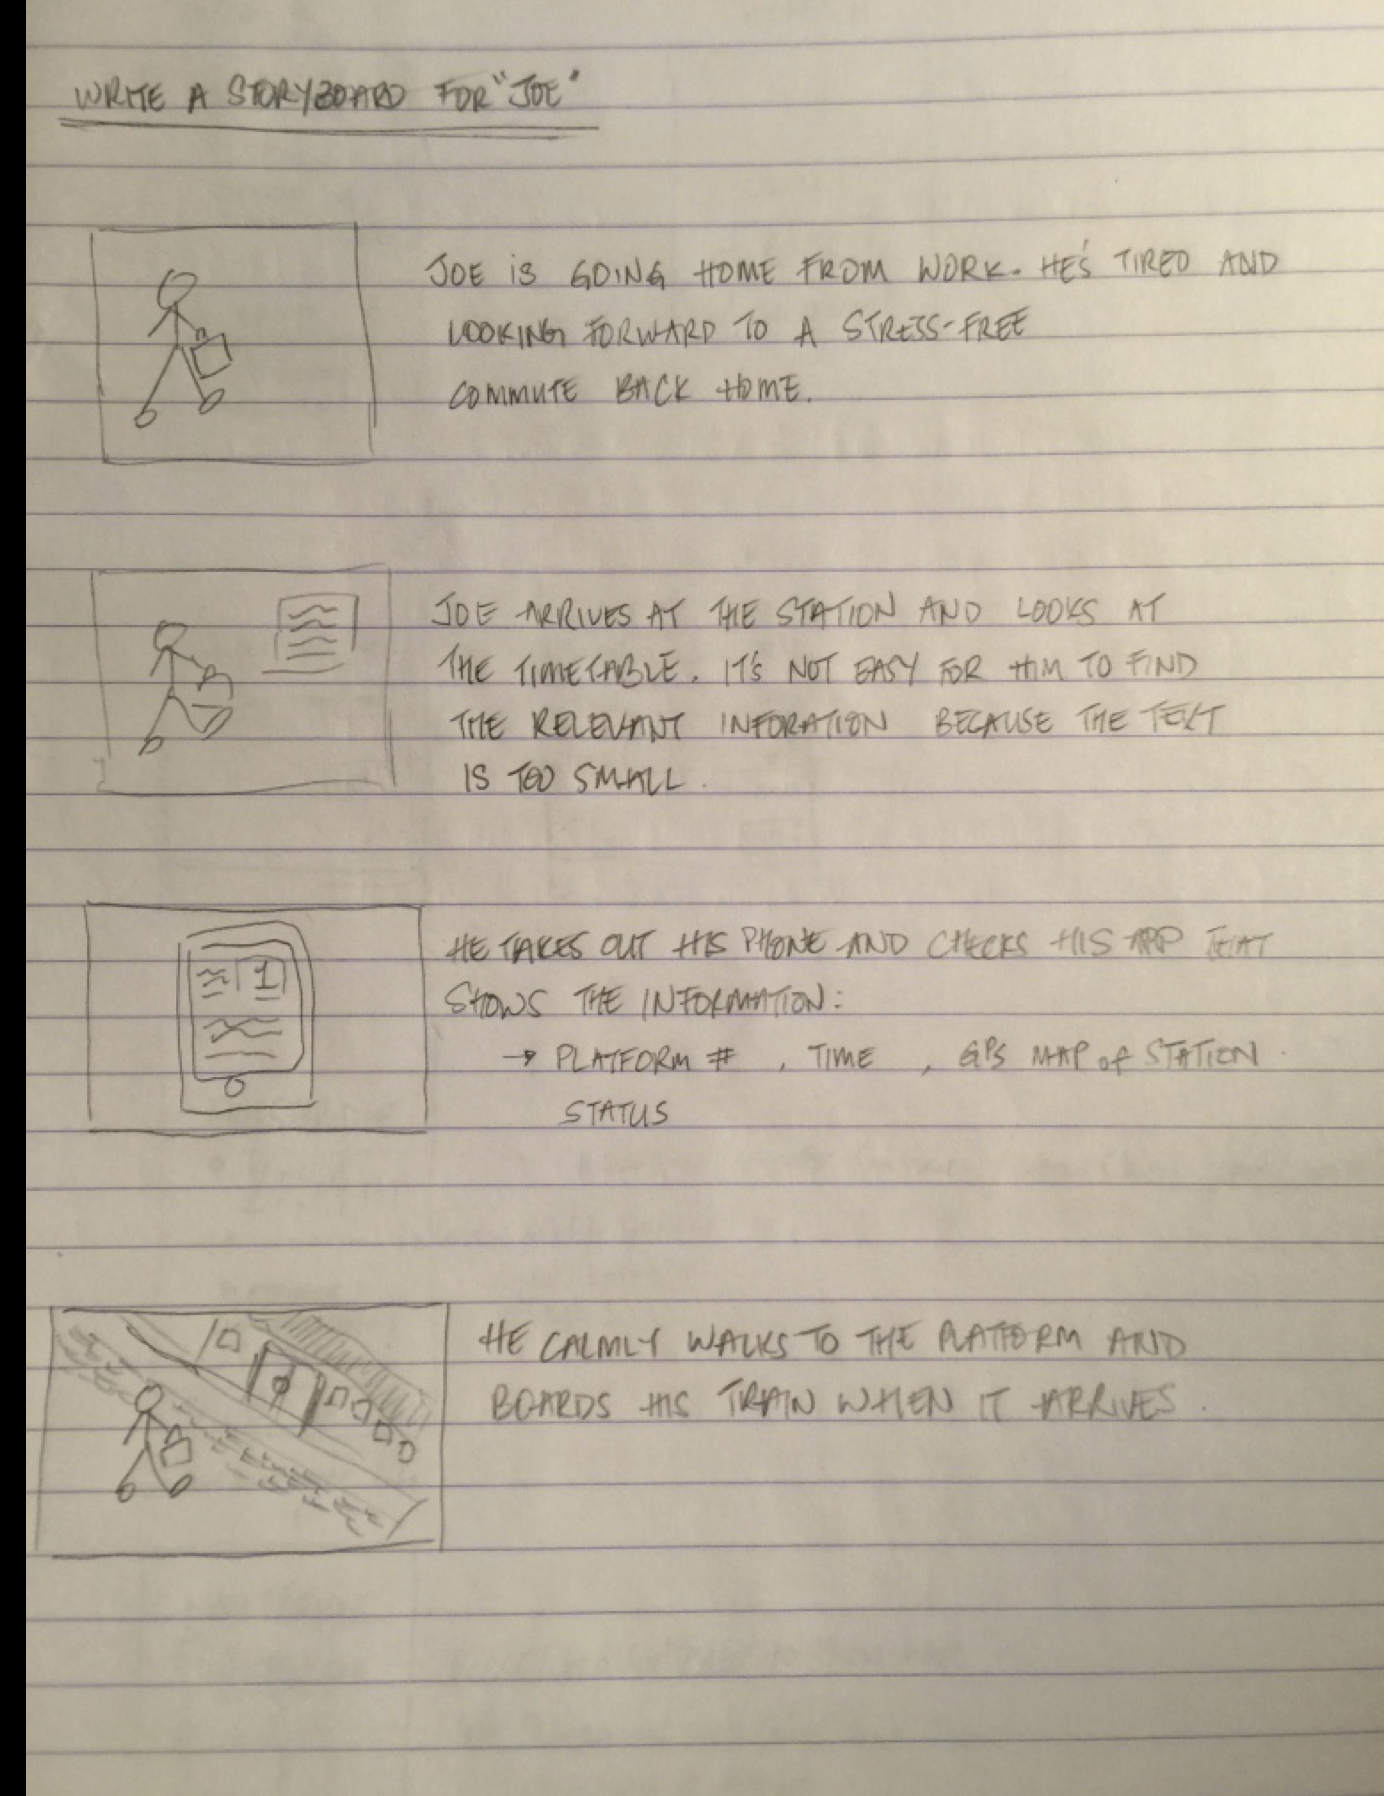 WRITE A STORYBOARD FOR "JOE"
JOE IS GOING HOME FROM WORK. HE'S TIRED AND
LOOKING FORWARD TO A STRESS-FREE
COMMUTE BACK HOME.
JOE ARRIVES AT THE STATION AND LOOKS AT
THE TIMETABLE. IT'S NOT EASY FOR HIM TO FIND
THE RELEVANT INFORATION BECAUSE THE TEXT
IS TOO SMALL.
1
HE TAKES OUT HIS PHONE AND CHECKS HIS APP THAT
SHOWS THE INFORMATION:
→ PLATFORM # , TIME , GPS MAP of STATION
STATUS
HE CALMLY WALKS TO THE PLATFORM AND
BOARDS HIS TRAIN WHEN IT ARRIVES.